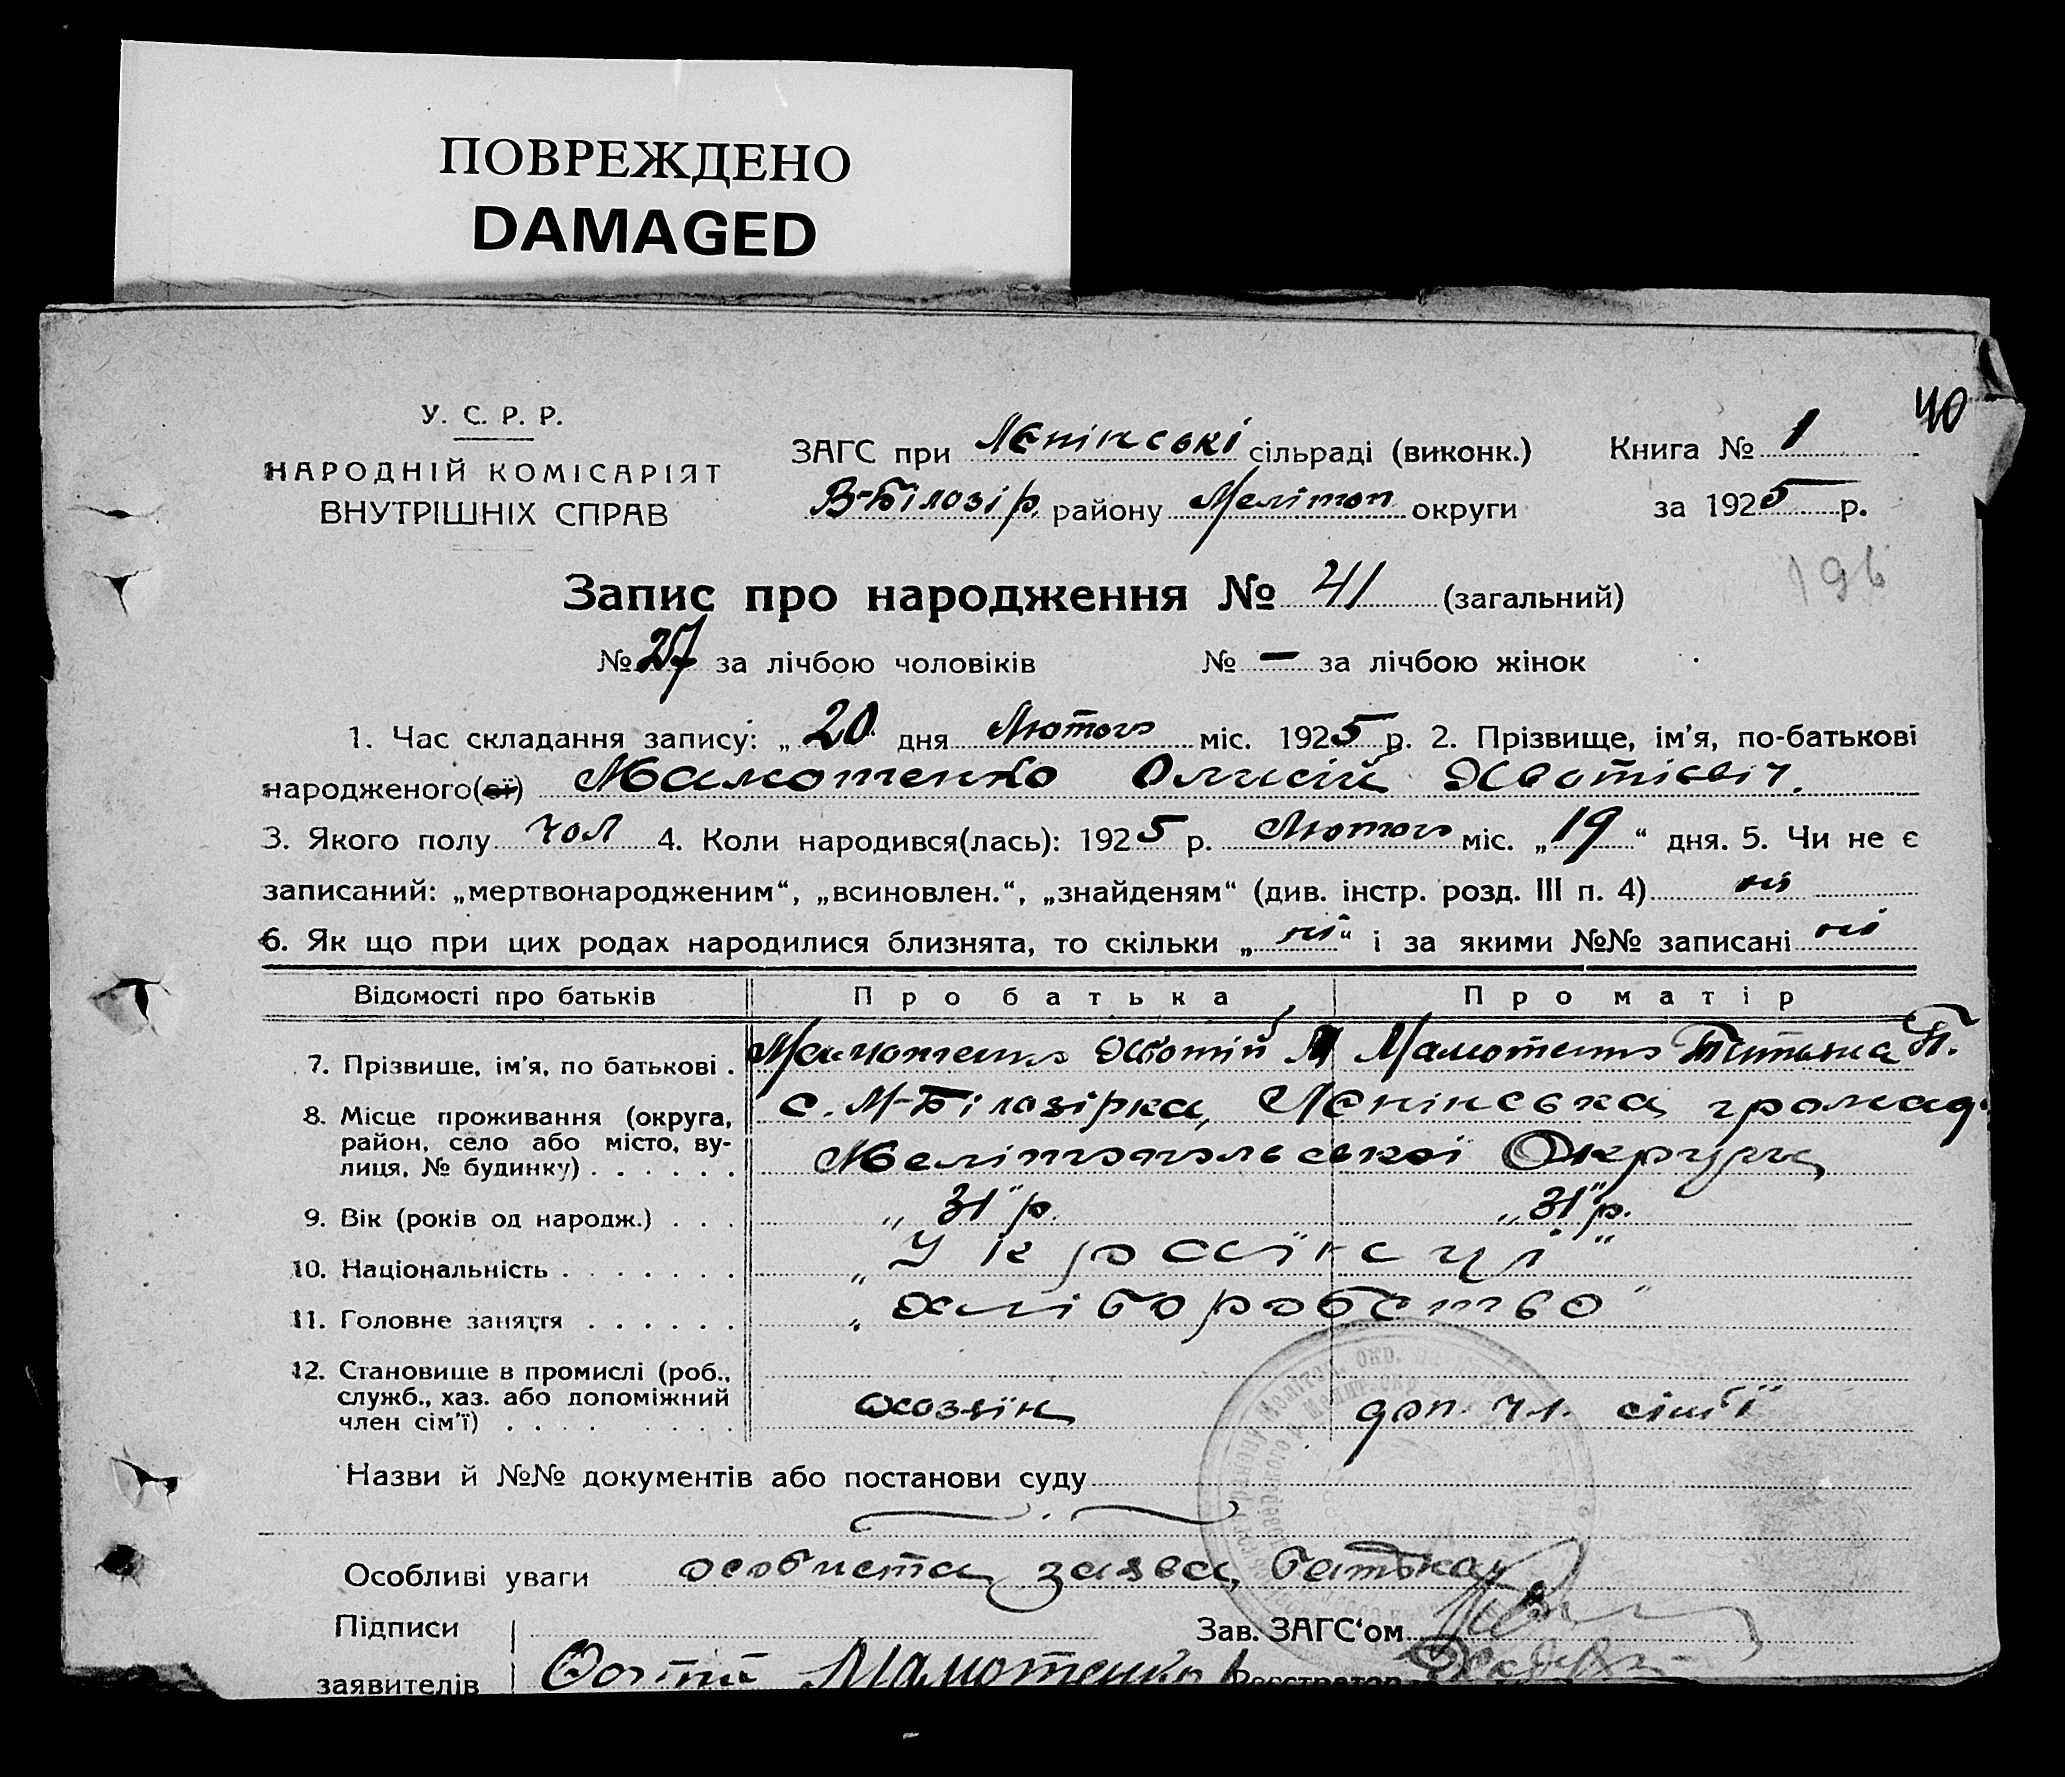 ПОВРЕЖДЕНО
DAMAGED
40
У. С. Р. Р.
НАРОДНІЙ КОМІСАРІЯТ
ВНУТРІШНІХ СПРАВ
ЗАГС при Ленінські сільраді (виконк.)
В-Білозір. району Мелітоп округи
Книга № 1
за 1925 р.
196
Запис про народження № 41 (загальний)
№ 27 за лічбою чоловіків № — за лічбою жінок
1. Час складання запису: „ 20 дня Лютого міс. 1925 р. 2. Прізвище, ім'я, по-батькові
народженого(ої) Мамотенко Олисій Хвотієвіч.
3. Якого полу чол 4. Коли народився(лась): 1925 р. Лютого міс. „19“ дня. 5. Чи не є
записаний: „мертвонародженим“, „всиновлен.“, „знайденям“ (див. інстр. розд. III п. 4) ні
6. Як що при цих родах народилися близнята, то скільки „ні“ і за якими №№ записані ні
Відомості про батьків Про батька Про матір
7. Прізвище, ім'я, по батькові . Мамотенко Хвотій Мамотенко Титьяна П.
8. Місце проживання (округа, район, село або місто, вулиця, № будинку) . . . . . . с. М-Білозірка, Ленінська громад.
Мелітопольської Округи
9. Вік (років од народж.) . . . „31“ р. „31“ р.
10. Національність . . . . . . . „Українці“
11. Головне заняття . . . . . . „хліборобство“
12. Становище в промислі (роб., служб., хаз. або допоміжний член сім'ї) . . . . . . . . хозяїн доп. чл. сімї
Назви й №№ документів або постанови суду
Особливі уваги особиста заява батька
Підписи
заявителів Мамотенко
Зав. ЗАГС'ом
Реєстратор